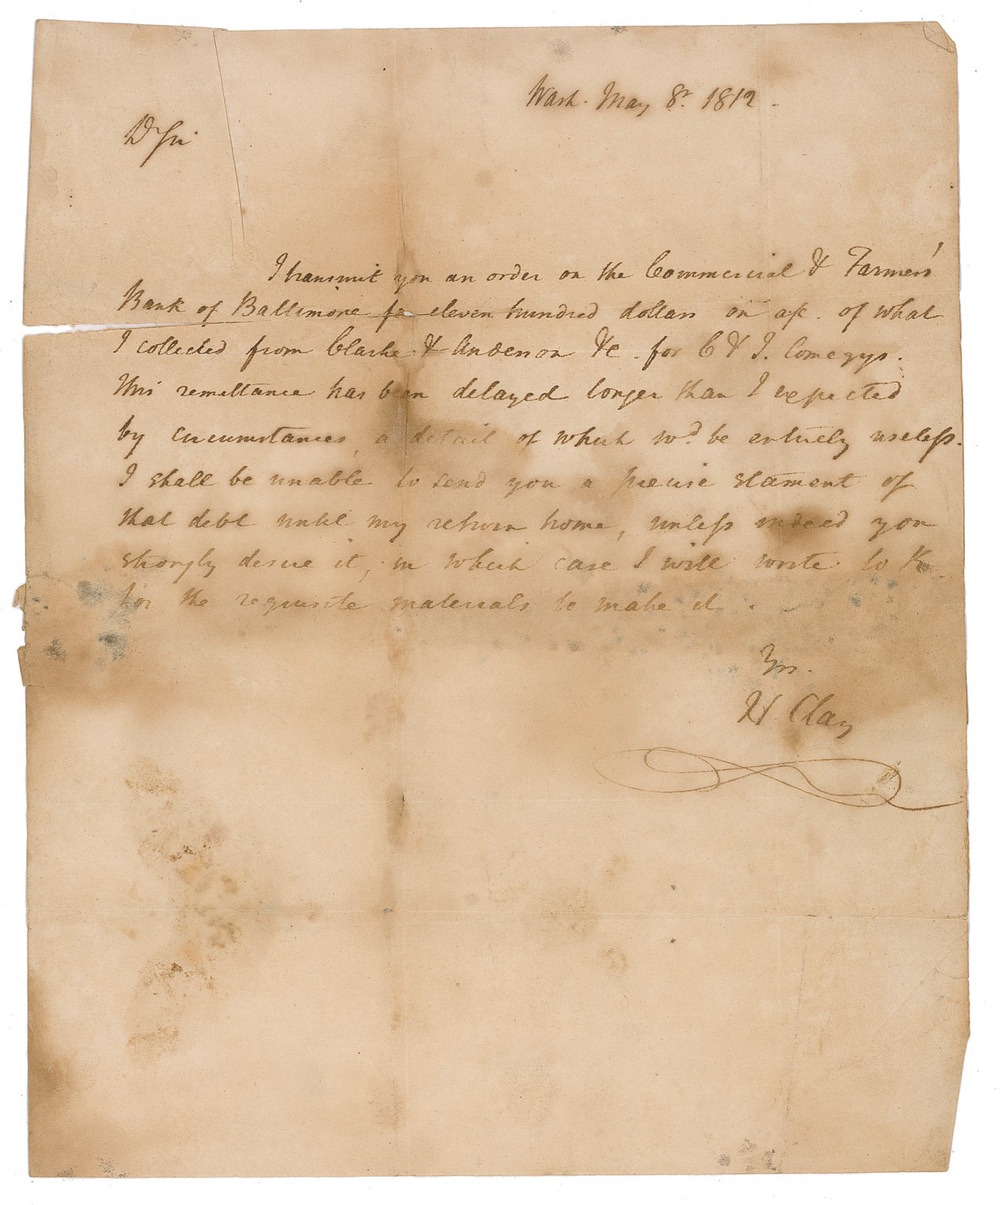 Wash. May 8th. 1812.
Dr Sir
I transmit you an order on the Commercial & Farmers'
Bank of Baltimore for eleven hundred dollars on a/c. of what
I collected from Clarke & Anderson &c. for C & J. Comegys.
This remittance has been delayed longer than I expected
by circumstances, a detail of which wd. be entirely useless.
I shall be unable to send you a precise stament of
that debt until my return home, unless indeed you
strongly desire it, in which case I will write to K.
for the requisite materials to make it.
Yrs.
H Clay